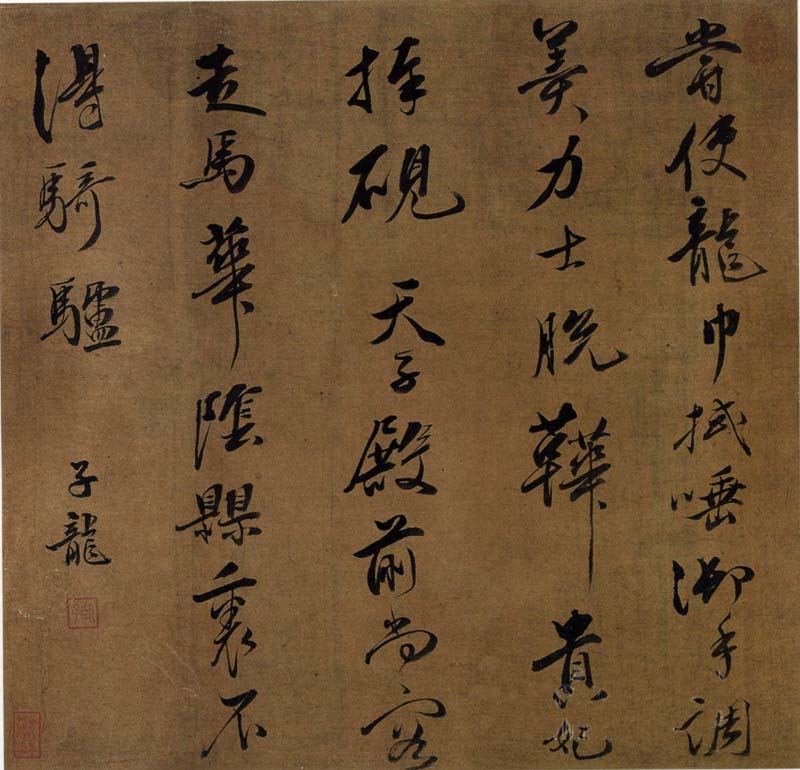 嘗使龍巾拭唾御手調
羹力士脫鞾貴妃
捧硯天子殿前尚容
走馬華陰縣裏不
得騎驢
子龍